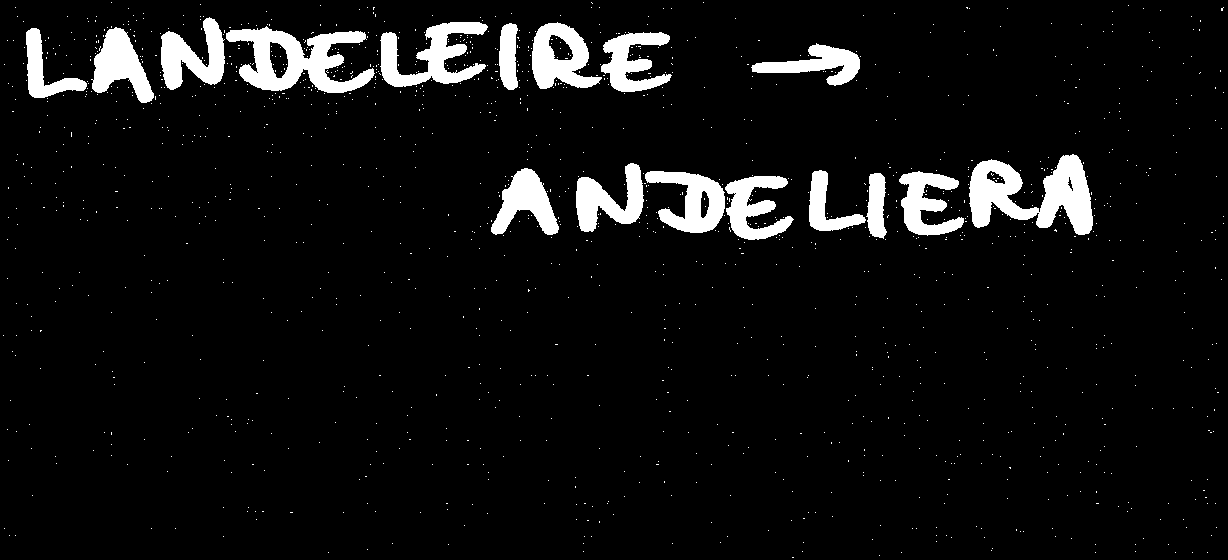 LANDELEIRE →
ANDELIERA